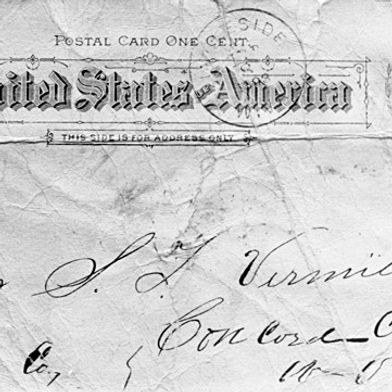 POSTAL CARD ONE CENT.
United States America
THIS SIDE IS FOR ADDRESS ONLY.
SIDE
S. T. Vermil
Concord
Co,